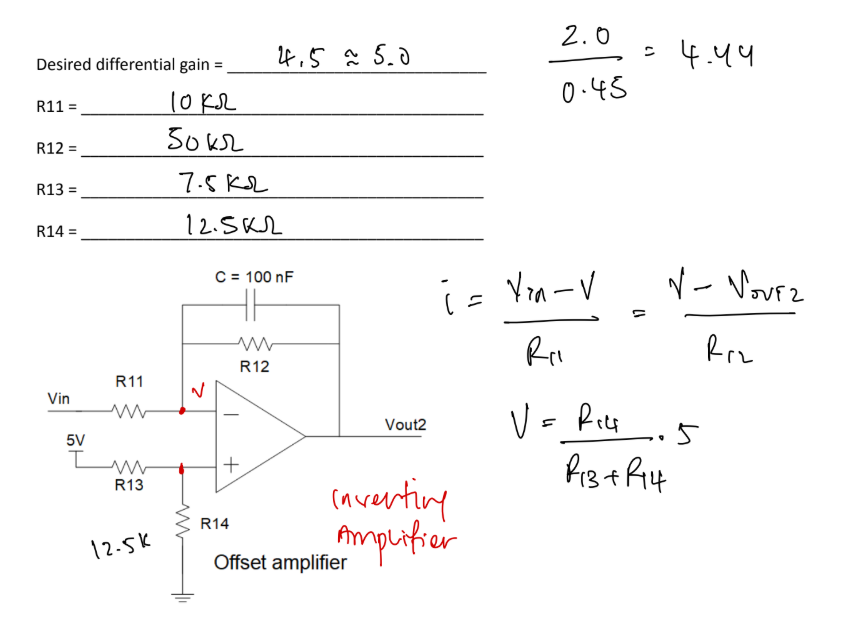 Desired differential gain = 4.5 ≈ 5.0
2.0 / 0.45 = 4.44
R11 = 10 KΩ
R12 = 50 KΩ
R13 = 7.5 KΩ
R14 = 12.5 KΩ
C = 100 nF
R12
R11
V
Vin
Vout2
5V
R13
R14
12.5K
Offset amplifier
Inverting
Amplifier
i = Vin - V / R11 = V - Vout2 / R12
V = R14 / R13 + R14 . 5